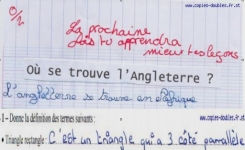 www.copies-doubles.fr.st
0/2
La prochaine
fois tu apprendra
mieux tes leçons
Où se trouve l'Angleterre ?
L'angleterre se trouve en Afrique
www.copies-doubles.fr.st
1 - Donne la définition des termes suivants :
• Triangle rectangle : C'est un triangle qui a 3 côté parrallèle